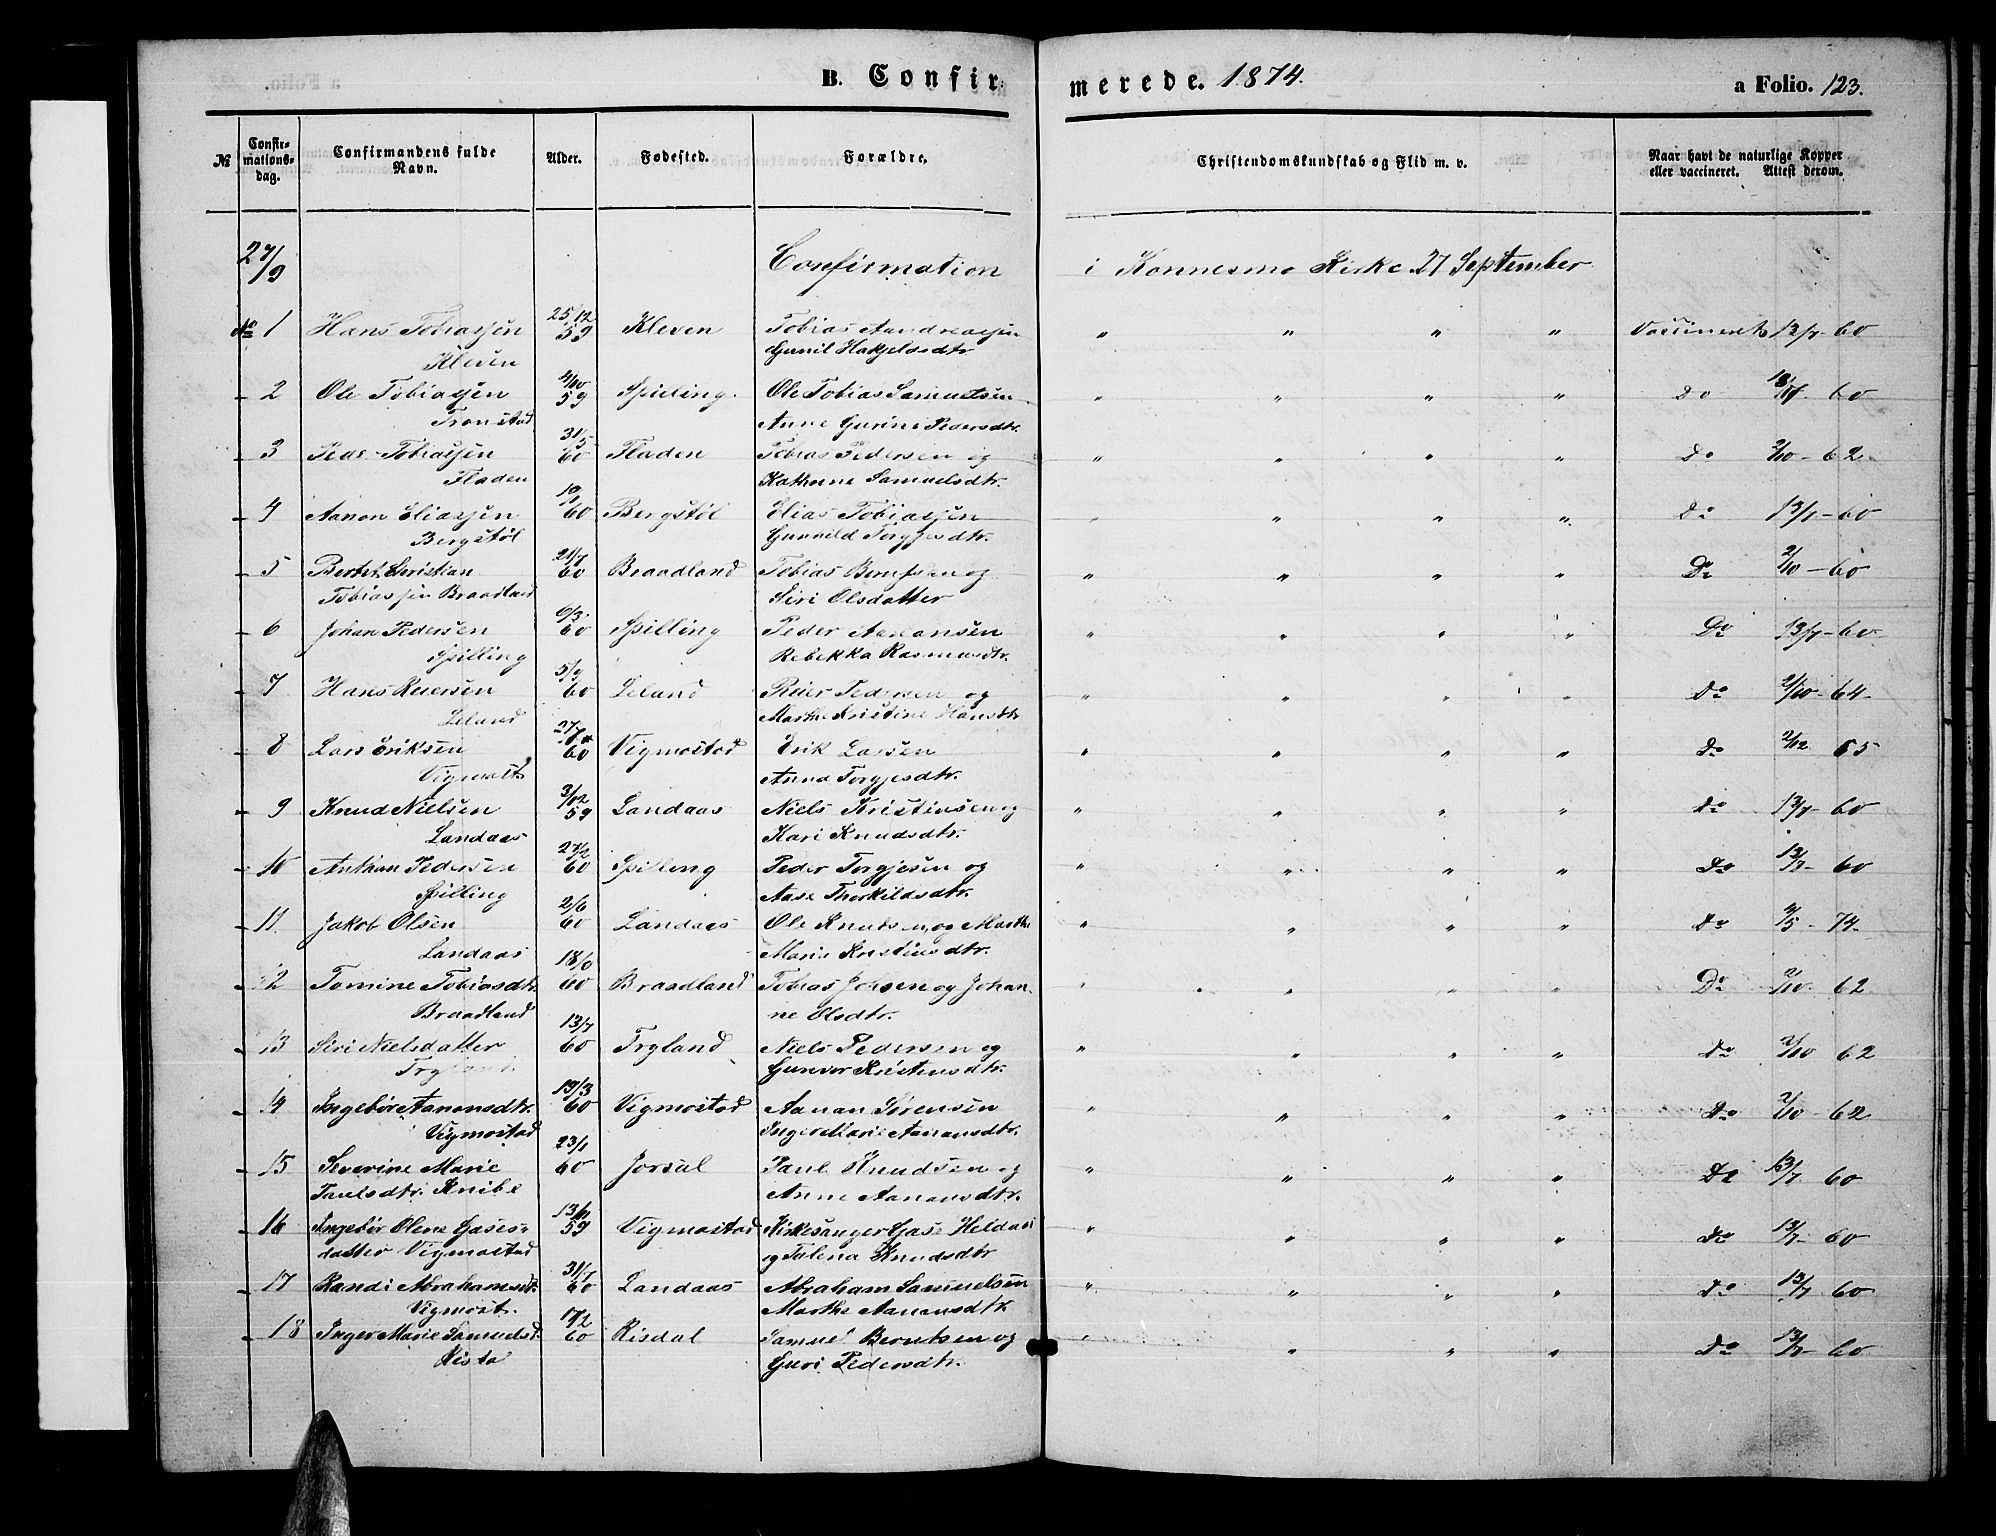 B. Confirmerede. 1874.
a Folio. 123.
№ Confirmationsdag. Confirmandens fulde Navn. Alder. Fødested. Forældre. Christendomskundskab og Flid m. v. Naar havt de naturlige Kopper eller vaccineret. Attest derom.
27/9 Confirmation i Konnesmo Kirke 27 September
No 1 Hans Tobiassen 25/12 59 Kleven Tobias Aandreassen " " " " Vaccineret 13/7-60
Kleven Gunil Hakjelsdtr
2 Ole Tobiassen 4/10 59 Spilling Ole Tobias Samuelsen " " " " Do 60
Tronstad Anne Gurine Pedersdtr.
3 Peder Tobiassen 31/5 60 Fladen Tobias Pedersen og " " " " Do 2/10-62
Fladen Kathrine Samuelsdtr.
4 Aanon Eliassen 60 Bergstøl Elias Tobiassen " " " " Do 13/7-60
Bergstøl Gunnild Torgjesdtr.
5 Bertet Christian 21/7 60 Braadland Tobias Berntsen og " " " " Do 2/10-60
Tobiassen Braadland Siri Olsdatter
6 Johan Pedersen 6/3 60 Spilling Peder Aanonsen " " " " Do 13/7-60
Spilling Rebekka Rasmusdtr.
7 Hans Reiersen 5/9 60 Leland Reier Pedersen og " " " " Do 2/10-64
Leland Marthe Kristine Hansdtr
8 Lars Eriksen 60 Vigmostad Erik Larsen " " " " Do 2/12 65
Vigmost. Anna Torgjesdtr.
9 Knud Nielsen 3/12 59 Landaas Niels Kristensen og " " " " Do 13/7-60
Landaas Kari Knudsdtr.
10 Anthon Pedersen 27/2 60 Spilling Peder Torgjesen og " " " " Do 13/7-60
Spilling Aase Thorkildsdtr.
11 Jakob Olsen 2/6 60 Landaas Ole Knutsen og Marthe " " " " Do 4/5-74
Landaas Marie Kristensdtr.
12 Tomine Tobiasdtr. 60 Braadland Tobias Johsen og Johan- " " " " Do 2/10-62
Braadland ne Olsdtr.
13 Siri Nielsdatter 13/7 60 Tryland Niels Pedersen og " " " " Do 2/10 62
Tryland. Gunvor Kristensdtr.
14 Ingebør Aanonsdtr. 19/3 60 Vigmostad Aanan Sørensen " " " " Do 2/10-62
Vigmostad Inger Marie Aanansdtr.
15 Severine Marie 23/1 60 Jorsal Paul Knudsen og " " " " Do 13/7 60
Paulsdtr. Knibe Anne Aanansdtr.
16 Ingebør Olene Gases- 59 Vigmostad Kirkesanger Gase Heldaas " " " " Do 13/7-60
datter Vigmostad og Talena Knudsdtr
17 Randi Abrahamsdt. 31/7 60 Landaas Abraham Samuelsen " " " " Do 13/7 60
Vigmost. Marthe Aanansdtr
18 Inger Marie Samuelsd. 60 Risdal Samuel Berntsen og " " " " Do 13/7-60
Guri Pedersdtr.